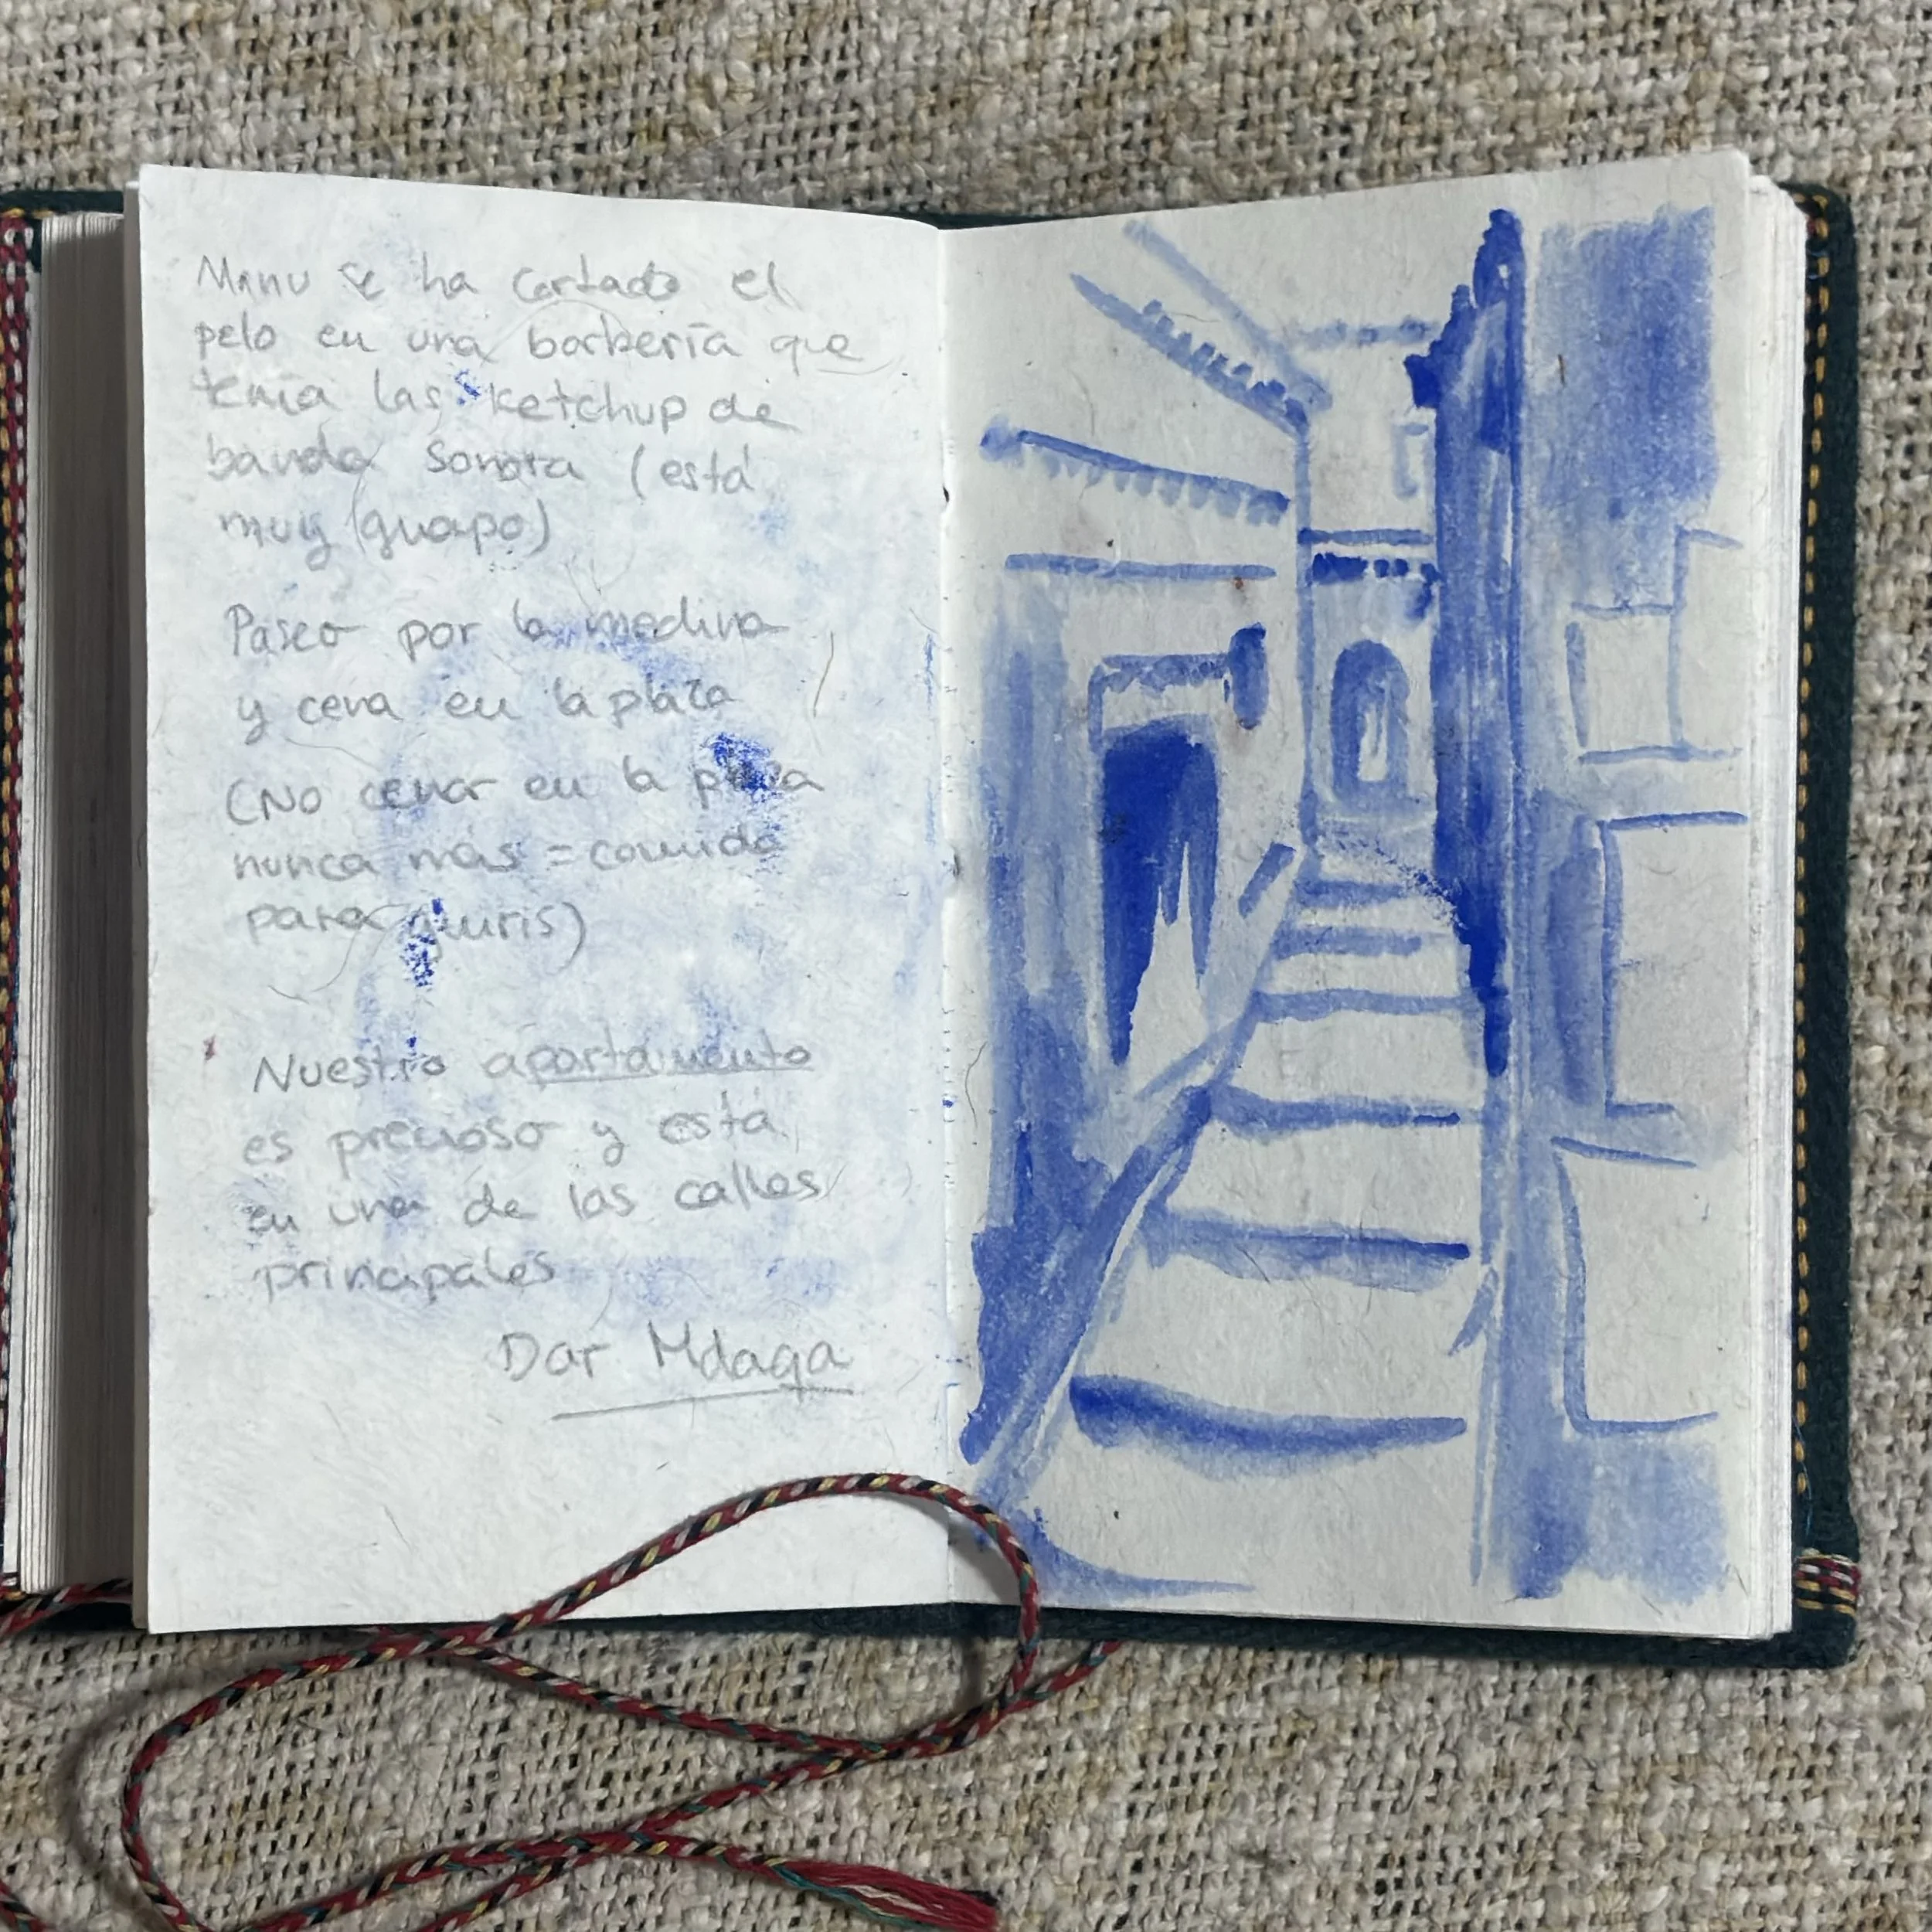 Manu se ha cortado el
pelo en una barbería que
tenía las ketchup de
banda sonora (está
muy guapo)
Paseo por la medina
y cena en la plaza
(No cenar en la plaza
nunca más = comida
para guiris)
Nuestro apartamento
es precioso y está
en una de las calles
principales
Dar Mdaqa